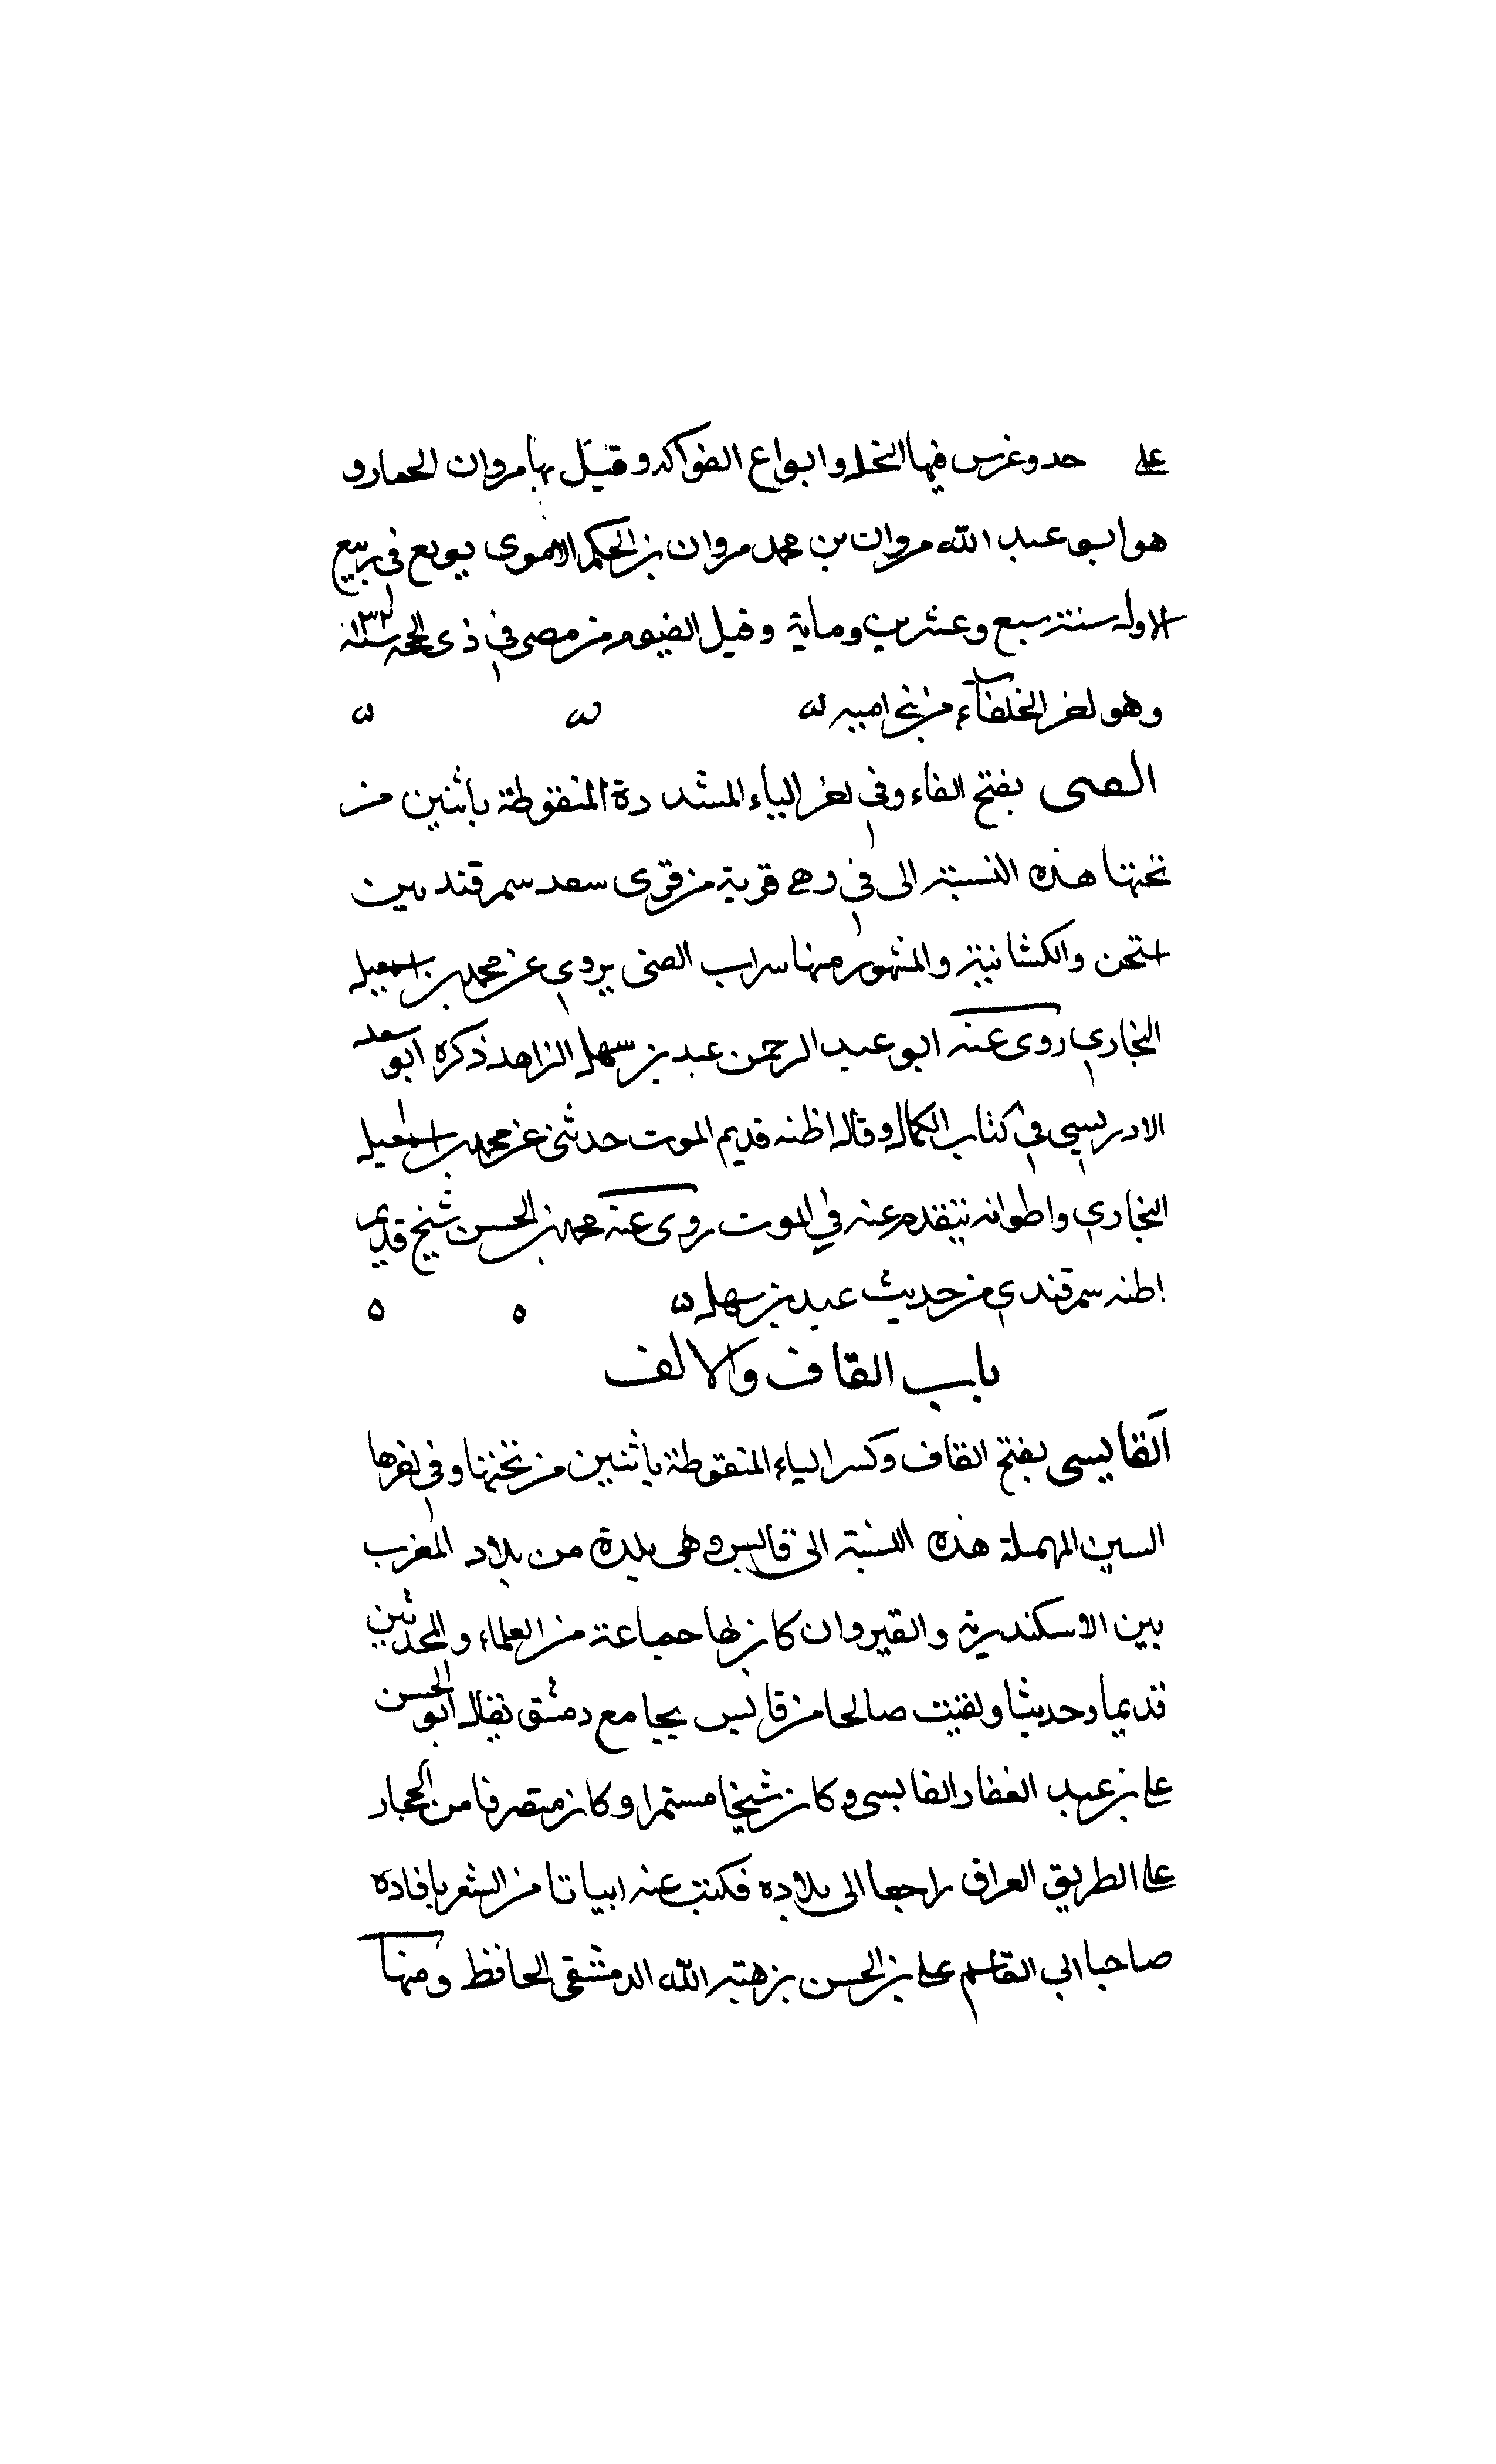 على حد وغرس فيها النخل وانواع الفواكه وقيل بها مروان الحمار و
هو ابو عبد الله مروان بن محمد مروان بن الحكم الاموى بويع فى ربيع
الاول سنة سبع وعشرين وماية وقيل الفيوم من مصر في ذى الحجة سنة ١٣٢
وهو اخر الخلفاء من بني امية
بفتح الفاء وفي اخر الياء المشددة المنقوطة باثنين من
تحتها هذه النسبة الى في وهي قرية من قرى سعد سمرقند بين
والكشانية والمشهور منها سراب الفى يروي عن محمد بن اسمعيل
البخاري روى عنه ابو عبد الرحمن عبد بن سهل الزاهد ذكره ابو سعد
الادريسي في كتاب الكمال وقال اظنه قديم الموت حدثنى عن محمد بن اسمعيل
البخاري واطوانه يتقدم عنه في الموت روى عنه محمد بن الحسن شيخ قديم
اظنه سمرقندي من حديث عبد بن سهل
باب القاف والالف
القايسى بفتح القاف وكسر الياء المنقوطة باثنين من تحتها وفي اخرها
السين المهملة هذه النسبة الى قايس وهى بلدة من بلاد المغرب
بين الاسكندرية والقيروان كان بها جماعة من العلماء والمحدثين
قديما وحديثا ولقيت صالحا من قابس بجامع دمشق يقال ابو الحسن
على بن عبد الغفار القابسى وكان شيخا مستمرا وكان متصرفا من الحجاز
على الطريق العراق راجعا الى بلاده فكتبت عنه ابياتا من الشعر بافادة
صاحبا ابى القاسم على بن الحسن بن هبة الله الدمشقى الحافظ ومنها